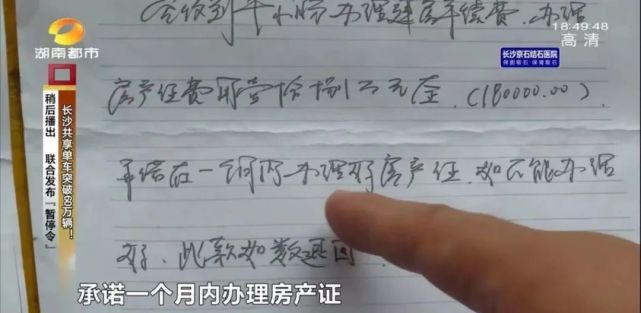 18:49:48
高清
湖南都市
长沙京石结石医院
保胆取石·保肾取石
今收到 办理 房手续费、办理
房产证费用 拾捌万元 (180000.00).
承诺在一 月内办理好房产证. 如不能办理
好. 此款如数退回.
长沙共享单车突破 万辆!
稍后播出 联合发布“暂停令”
承诺一个月内办理房产证